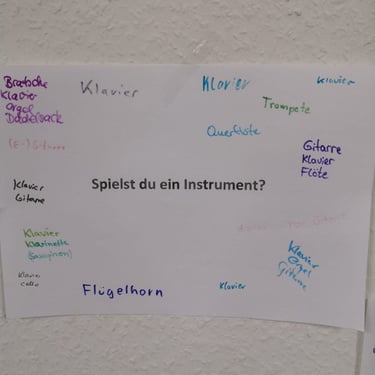 Bratsche
Klavier
Orgel
Dudelsack
Klavier
Klavier
Klavier
Trompete
Querflöte
(E-)Gitarre
Gitarre
Klavier
Flöte
Klavier
Gitarre
Spielst du ein Instrument?
Gitarre
Klavier
Klarinette
(Saxophon)
Klavier
Orgel
Gitarre
Klavier
Cello
Flügelhorn
Klavier